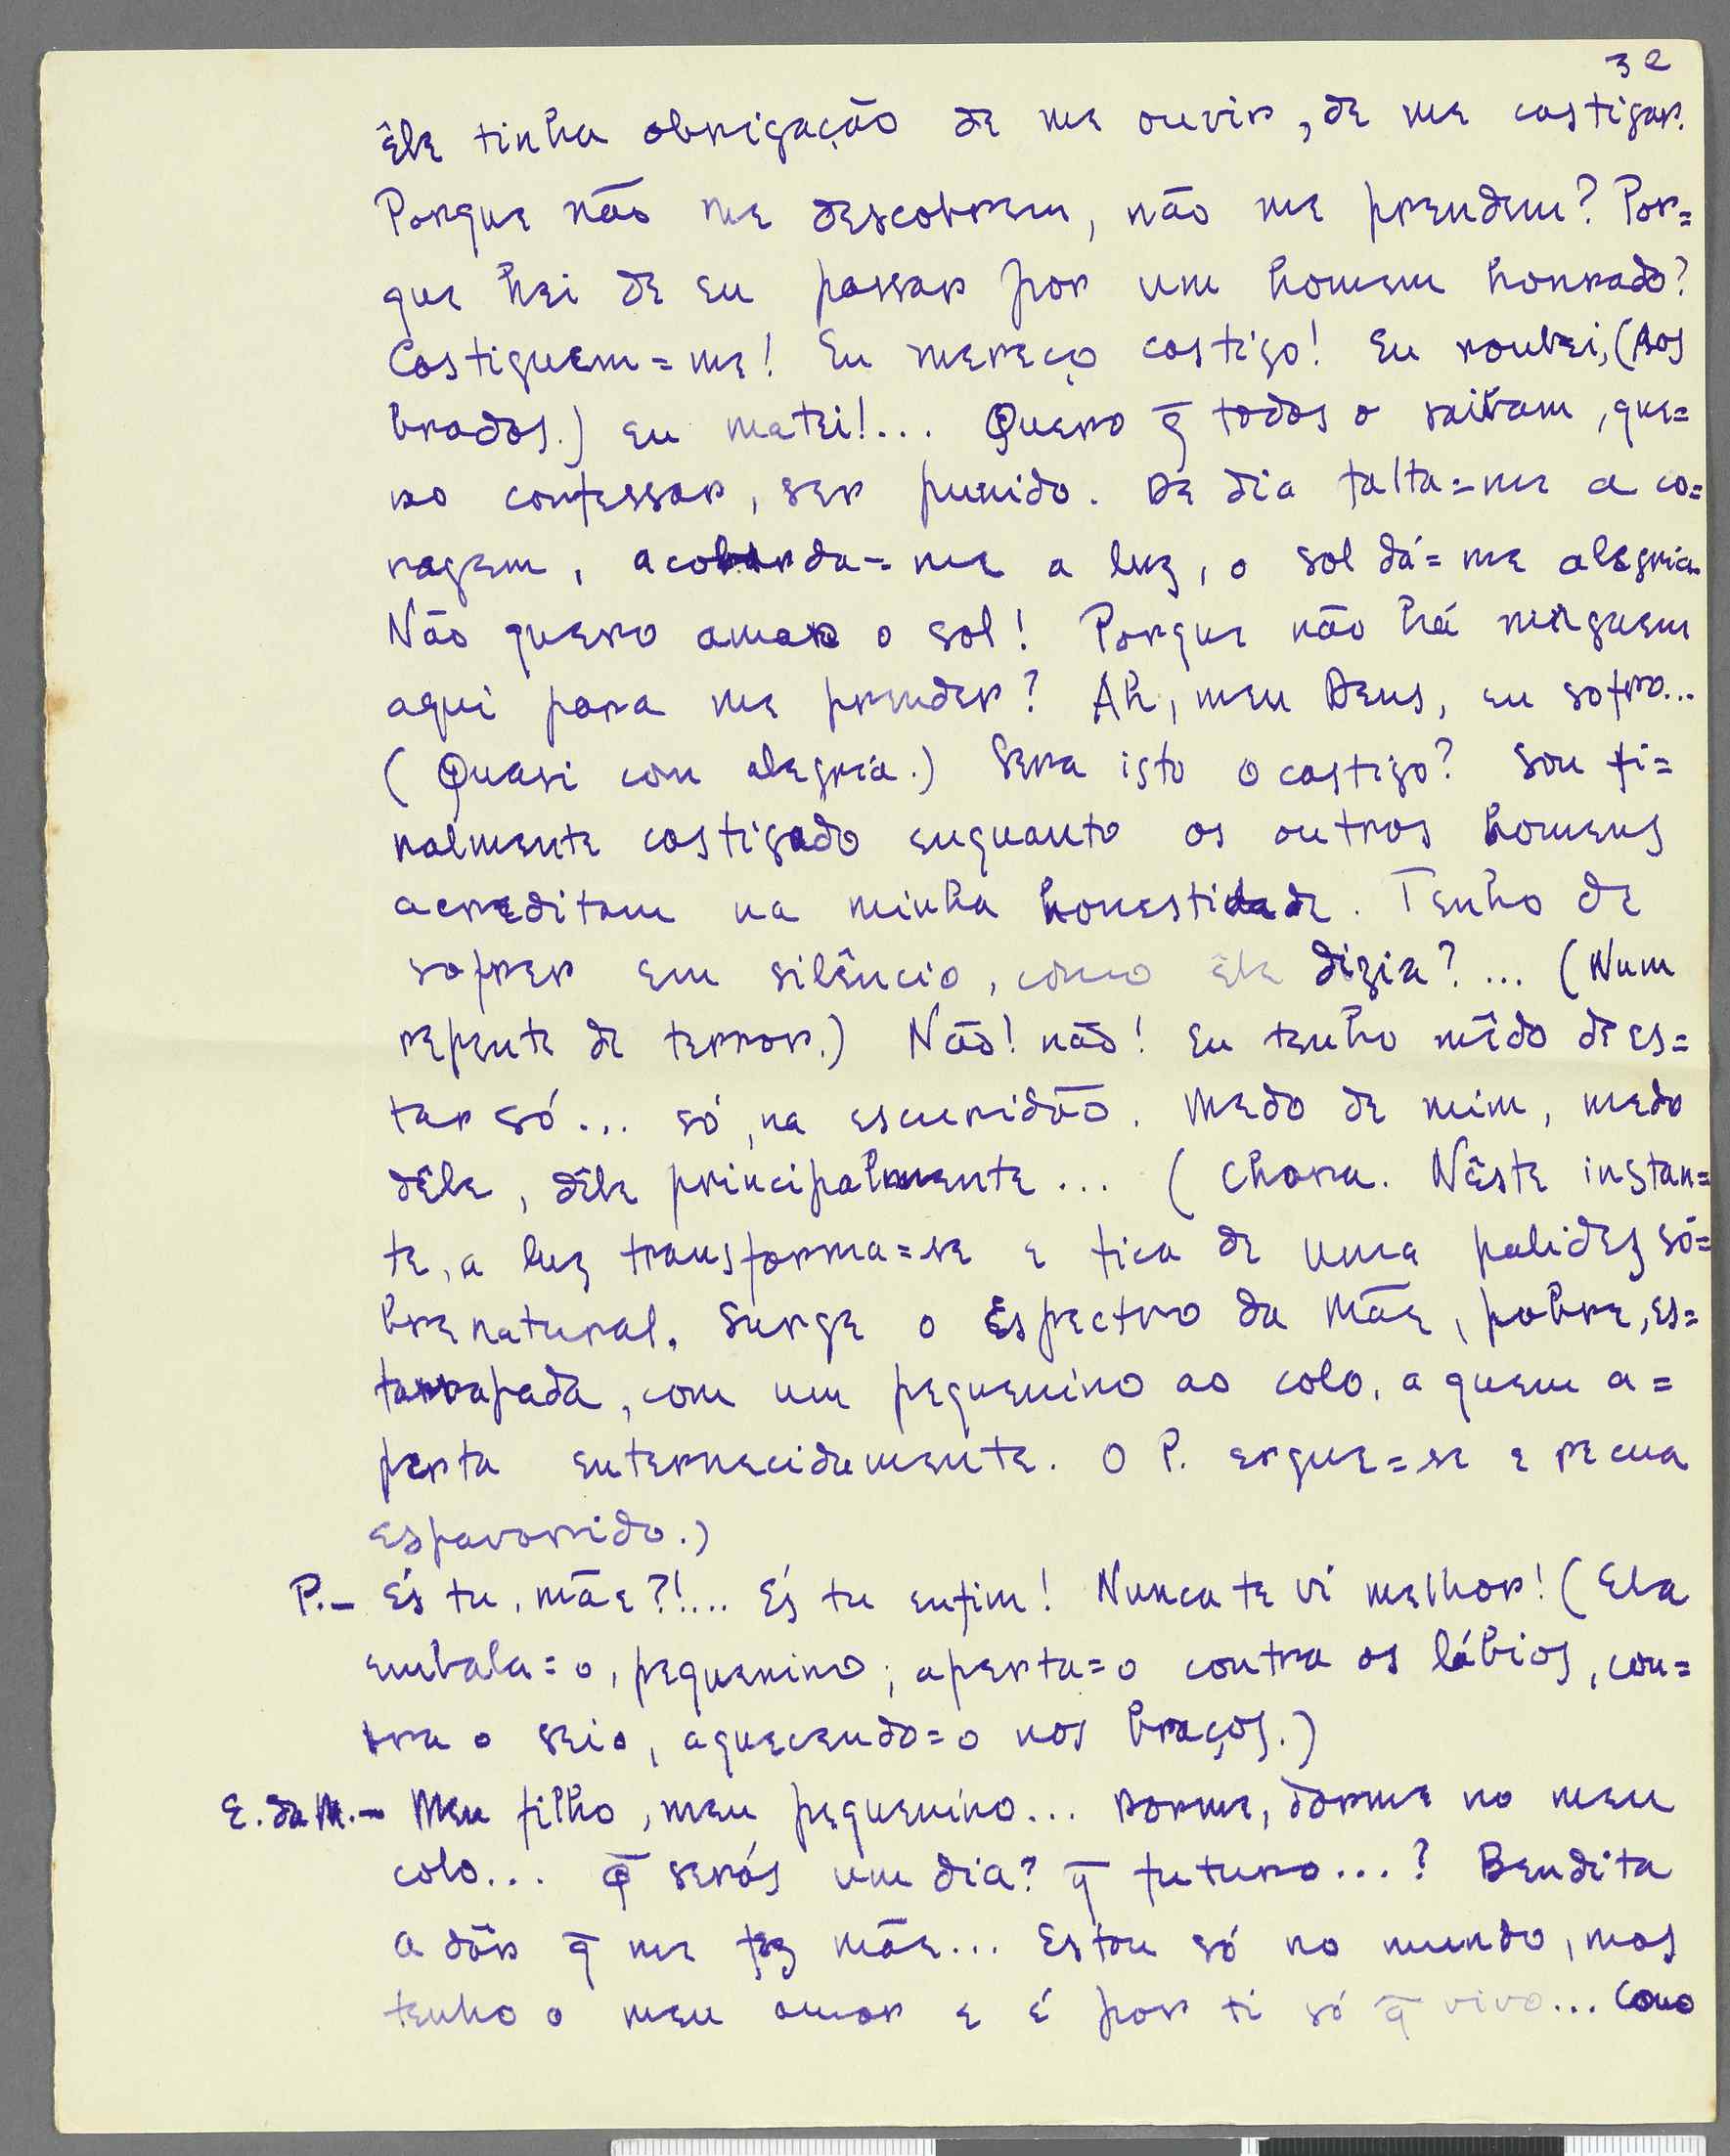 3e
Êle tinha obrigação de me ouvir, de me castigar.
Porque não me descobrem, não me prendem? Por=
que hei de eu passar por um homem honrado?
Castiguem=me! Eu mereço castigo! Eu roubei, (Aos
brados.) eu matei!... Quero q̄ todos o saibam, que=
ro confessar, ser punido. De dia falta=me a co=
ragem, acobarda=me a luz, o sol dá=me alegria.
Não quero amar o sol! Porque não há ninguem
aqui para me prender? Ah, meu Deus, eu sofro...
(Quasi com alegria.) Sera isto o castigo? Sou fi=
nalmente castigado enquanto os outros homens
acreditam na minha honestidade. Tenho de
sofrer em silêncio, como êle dizia?... (Num
repente de terror.) Não! não! Eu tenho mêdo de es=
tar só... só, na escuridão. Medo de mim, medo
dêle, dêle principalmente... (Chora. Nêste instan=
te, a luz transforma=se e fica de uma palidez só=
brenatural. Surge o Espectro da Mãe, pobre, es=
farrapada, com um pequenino ao colo, a quem a=
perta enternecidamente. O P. ergue=se e recua
espavorido.)
P.- És tu, mãe?!... És tu enfim! Nunca te vi melhor! (Ela
embala=o, pequenino; aperta=o contra os lábios, con=
tra o seio, aquecendo=o nos braços.)
E. da M.- Meu filho, meu pequenino... Dorme, dorme no meu
colo... Q̄ serás um dia? q̄ futuro...? Bendita
a dôr q̄ me fez mãe... Estou só no mundo, mas
tenho o meu amor e é por ti só q̄ vivo... Como